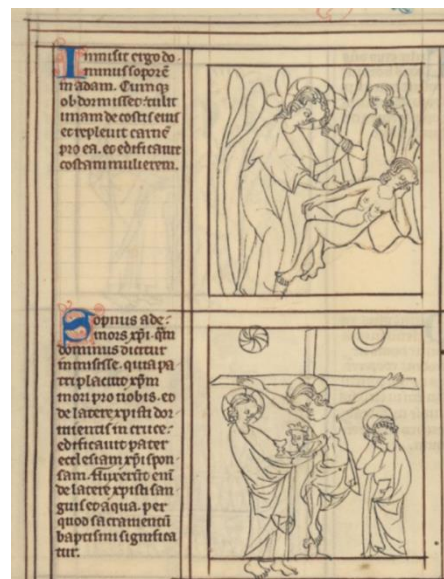 Inmisit ergo do-
minus soporē
in adam. Cumq̄
obdormisset: tulit
unam de costis eius
et repleuit carnē
pro ea. et edificauit
costam mulierem.
Sopnus ade:
mors xp̄i. q̄m
dominus dicitur
inmisisse. quia pa
tri placuit xp̄m
mori pro nobis. et
de latere xp̄isti dor
mientis in cruce:
edificauit pater
ecclesiam xp̄i spon
sam. fluxerūt eni
de latere xp̄isti san
guis et aqua. per
quod sacramentū
baptismi significa
tur.